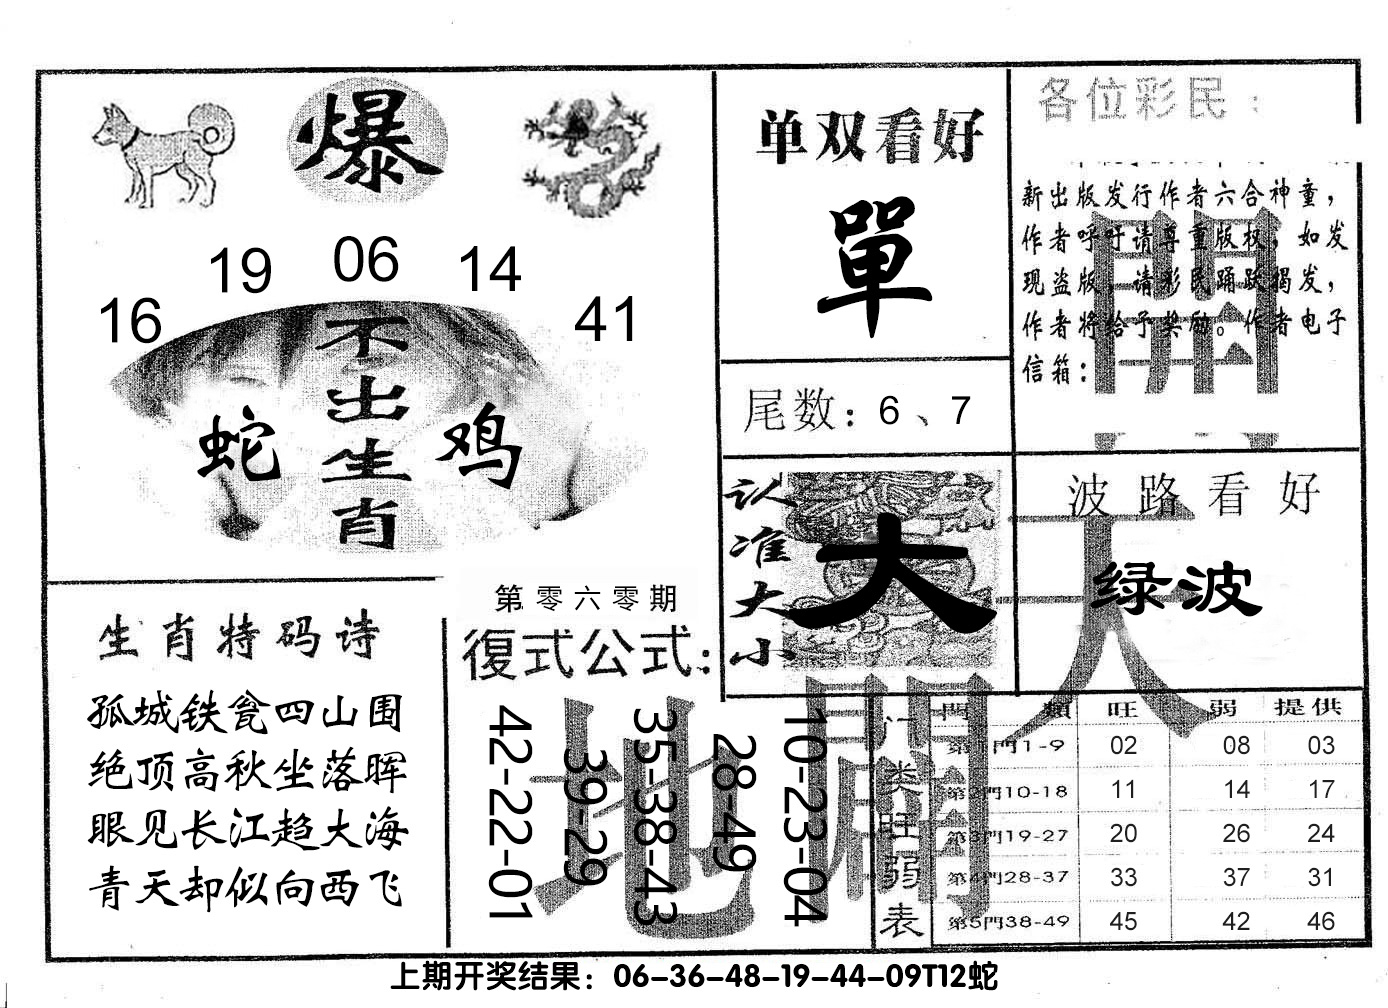 爆
16
19
06
14
41
不出生肖
蛇
鸡
单双看好
單
尾数：6、7
各位彩民：
新出版发行作者六合神童，
作者呼吁请尊重版权，如发
现盗版，请彩民踊跃揭发，
作者将给予奖励。作者电子
信箱：
认准大小
大
波路看好
绿波
天地
開開
生肖特码诗
孤城铁瓮四山围
绝顶高秋坐落晖
眼见长江趋大海
青天却似向西飞
第零六零期
復式公式：
42-22-01
39-29
35-38-43
28-49
10-23-04
门类旺弱表
門類 旺 弱 提供
第1門1-9 02 08 03
第2門10-18 11 14 17
第3門19-27 20 26 24
第4門28-37 33 37 31
第5門38-49 45 42 46
上期开奖结果：06-36-48-19-44-09T12蛇